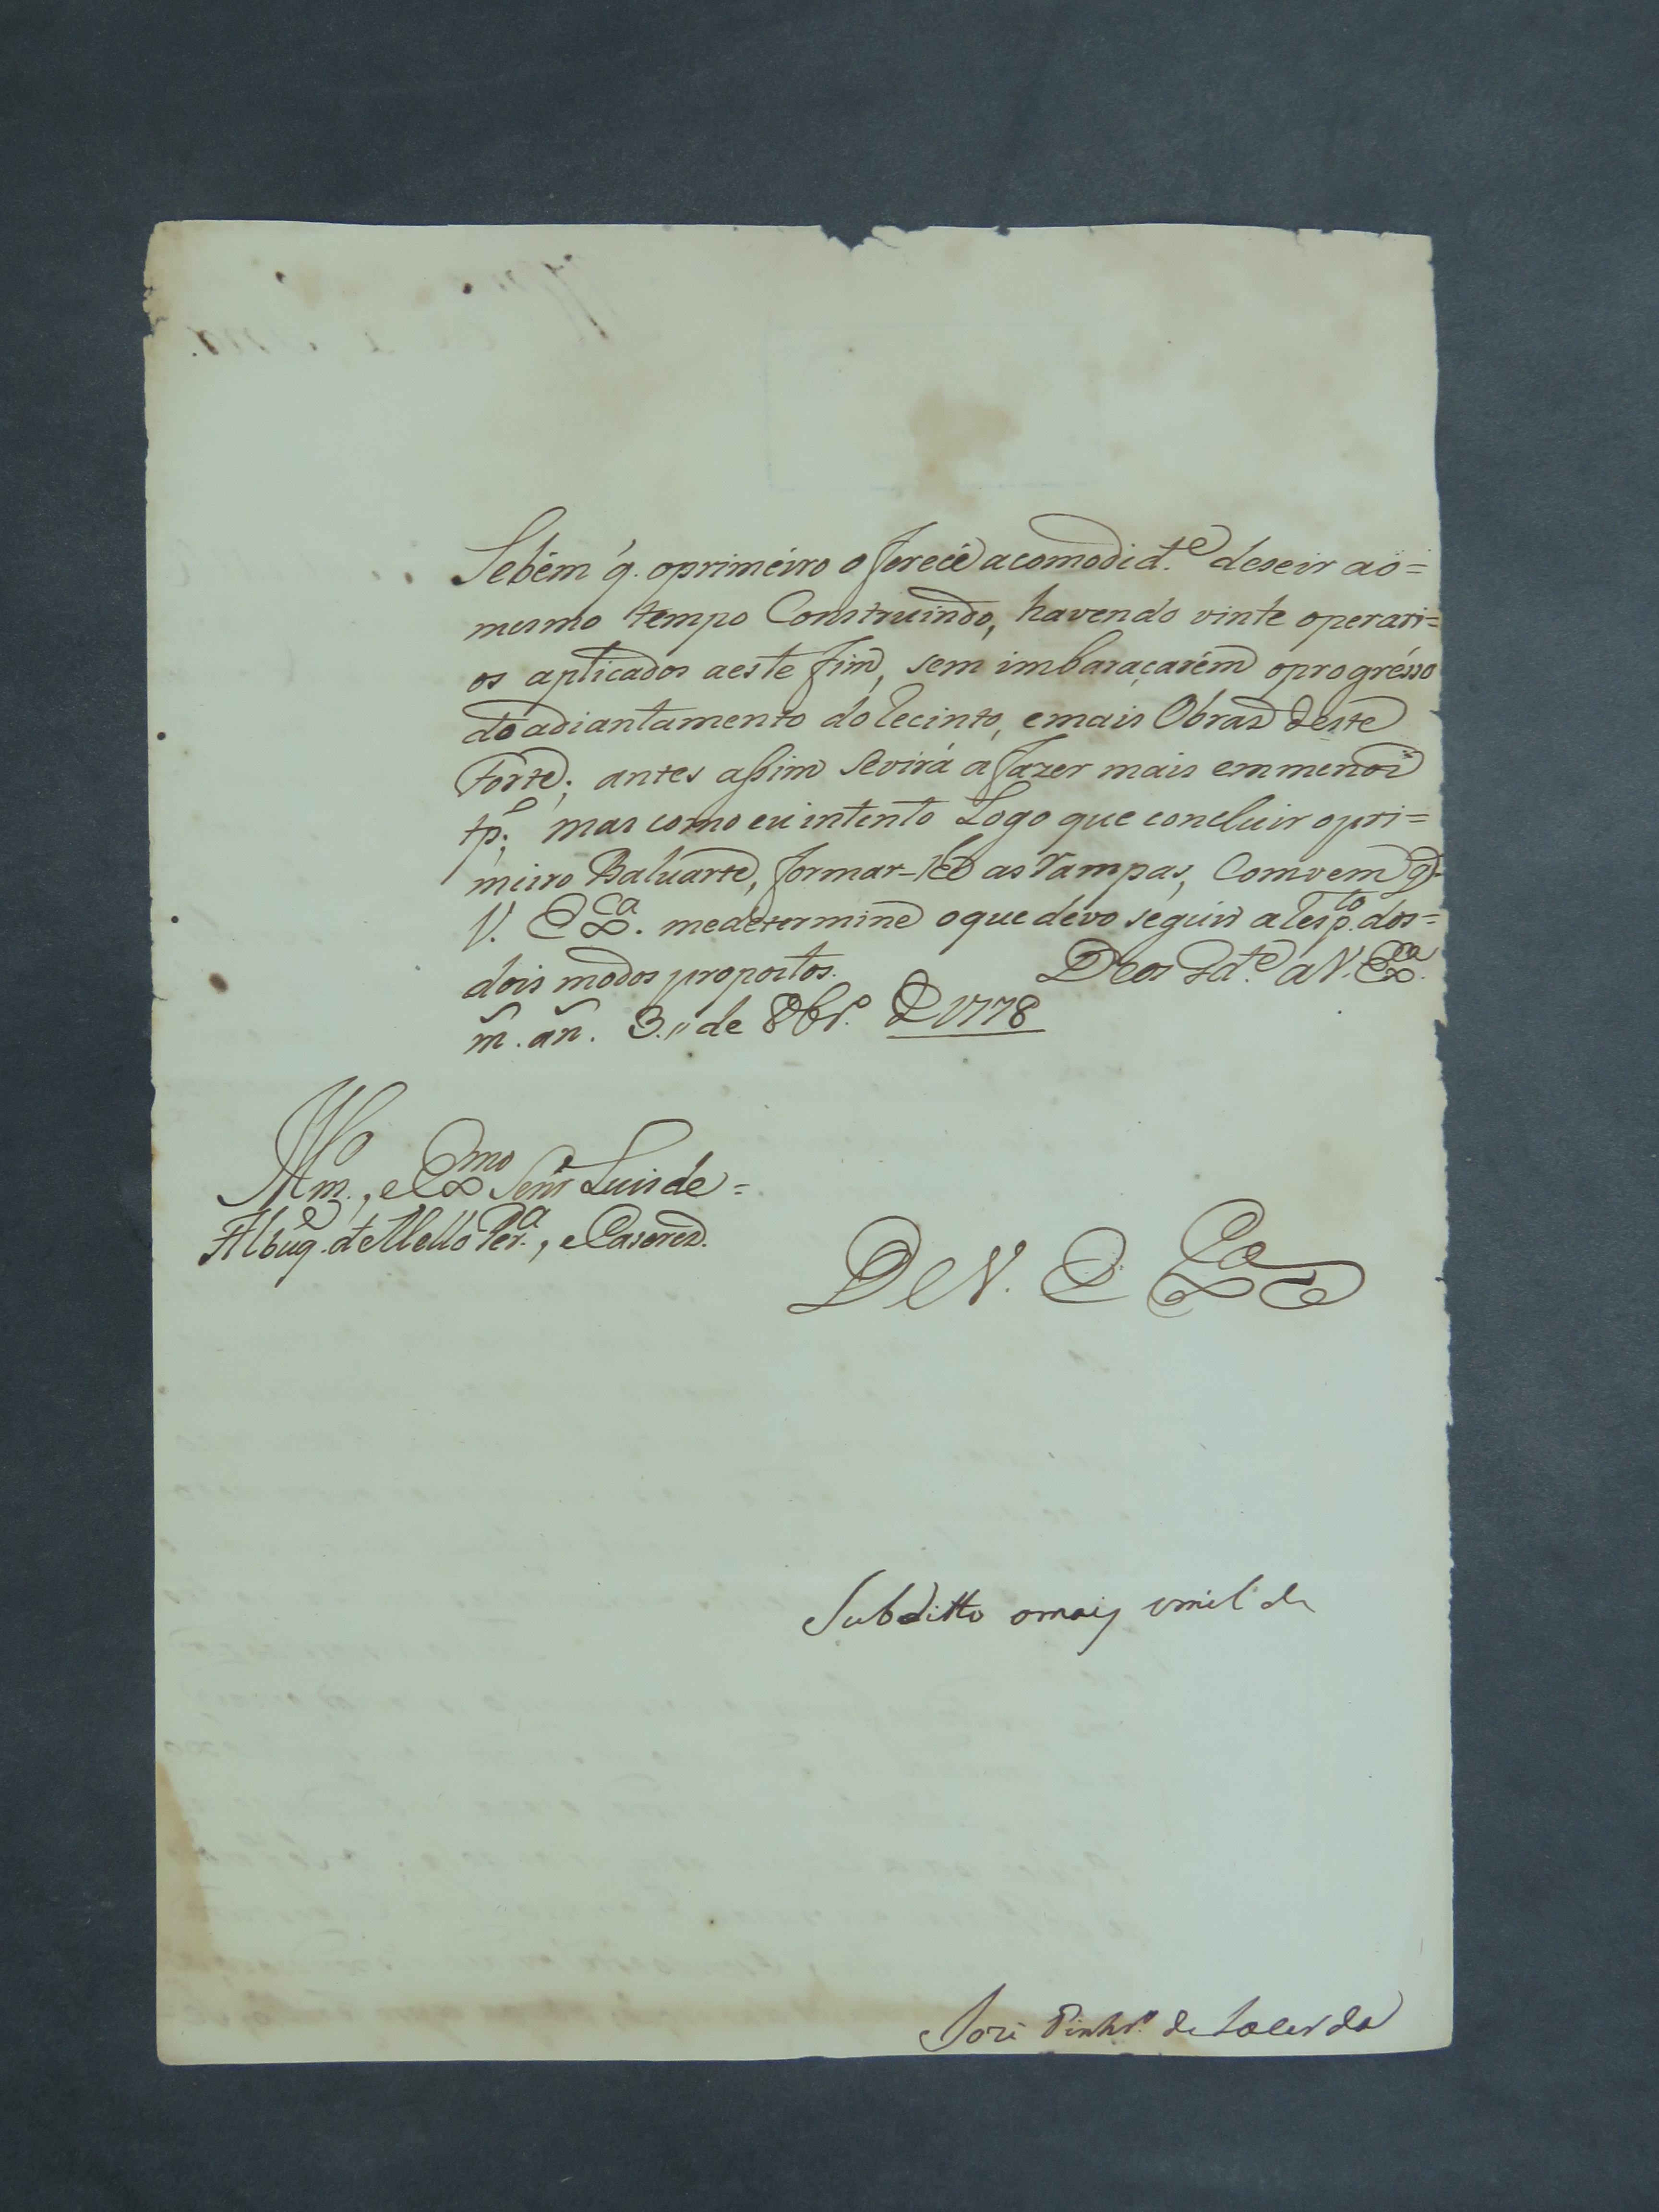 Sebém q̃. oprimeiro oferece acomodid.e deseir ao=
mesmo tempo Construindo, havendo vinte operari=
os aplicados aeste fim, sem imbaraçarém oprogrésso
do adiantamento do Recinto, emais Obras deste
Forte; antes assim sevirá afazer mais emmenor
tp.o; mas como eu intento Logo que concluir opri=
meiro Baluarte, formar-lhe as Rampas, Comvem q̃
V. Ex.ca medetermine oque devo seguir aResp.to dos=
dois modos propostos. Deos G.de a V. Ex.ca
m. an. 3., de 8br.o D 1778
Illm.o, e Exmo Senr Luis de=
Albuq.e d Mello Per.a, e Caseres.
De V. Ex.ca
Subditto omais umilde
José Pinhr.o de Lacerda